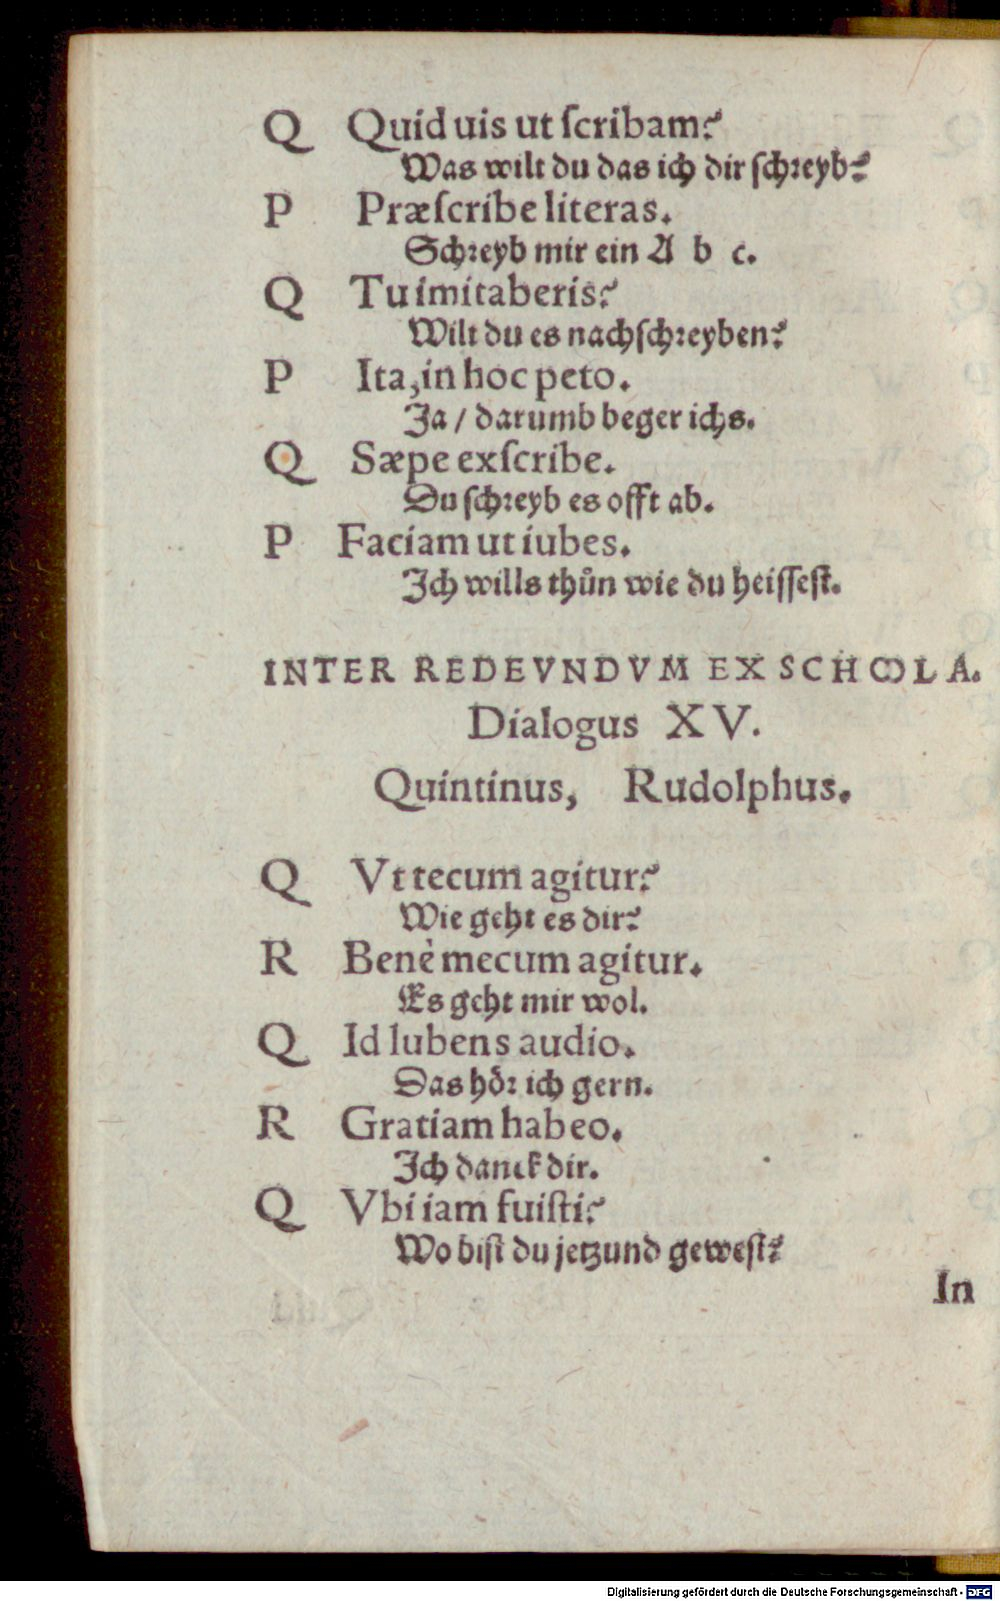 Q Quid uis ut ſcribam?
Was wilt du das ich dir ſchꝛeyb?
P Præſcribe literas.
Schꝛeyb mir ein A b c.
Q Tu imitaberis?
Wilt du es nachſchꝛeyben?
P Ita, in hoc peto.
Ja / darumb beger ichs.
Q Sæpe exſcribe.
Du ſchꝛeyb es offt ab.
P Faciam ut iubes.
Ich wills thůn wie du heiſſeſt.
INTER REDEVNDVM EX SCHOLA.
Dialogus XV.
Quintinus, Rudolphus.
Q Vt tecum agitur?
Wie geht es dir?
R Benè mecum agitur.
Es geht mir wol.
Q Id lubens audio.
Das hoͤꝛ ich gern.
R Gratiam habeo.
Ich danck dir.
Q Vbi iam fuiſti?
Wo biſt du jetzund geweſt?
In
Digitalisierung gefördert durch die Deutsche Forschungsgemeinschaft - DFG